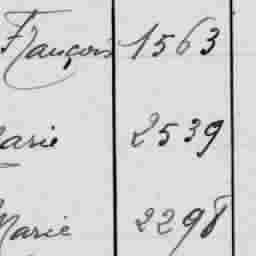 François 1563
Marie 2539
Marie 2298